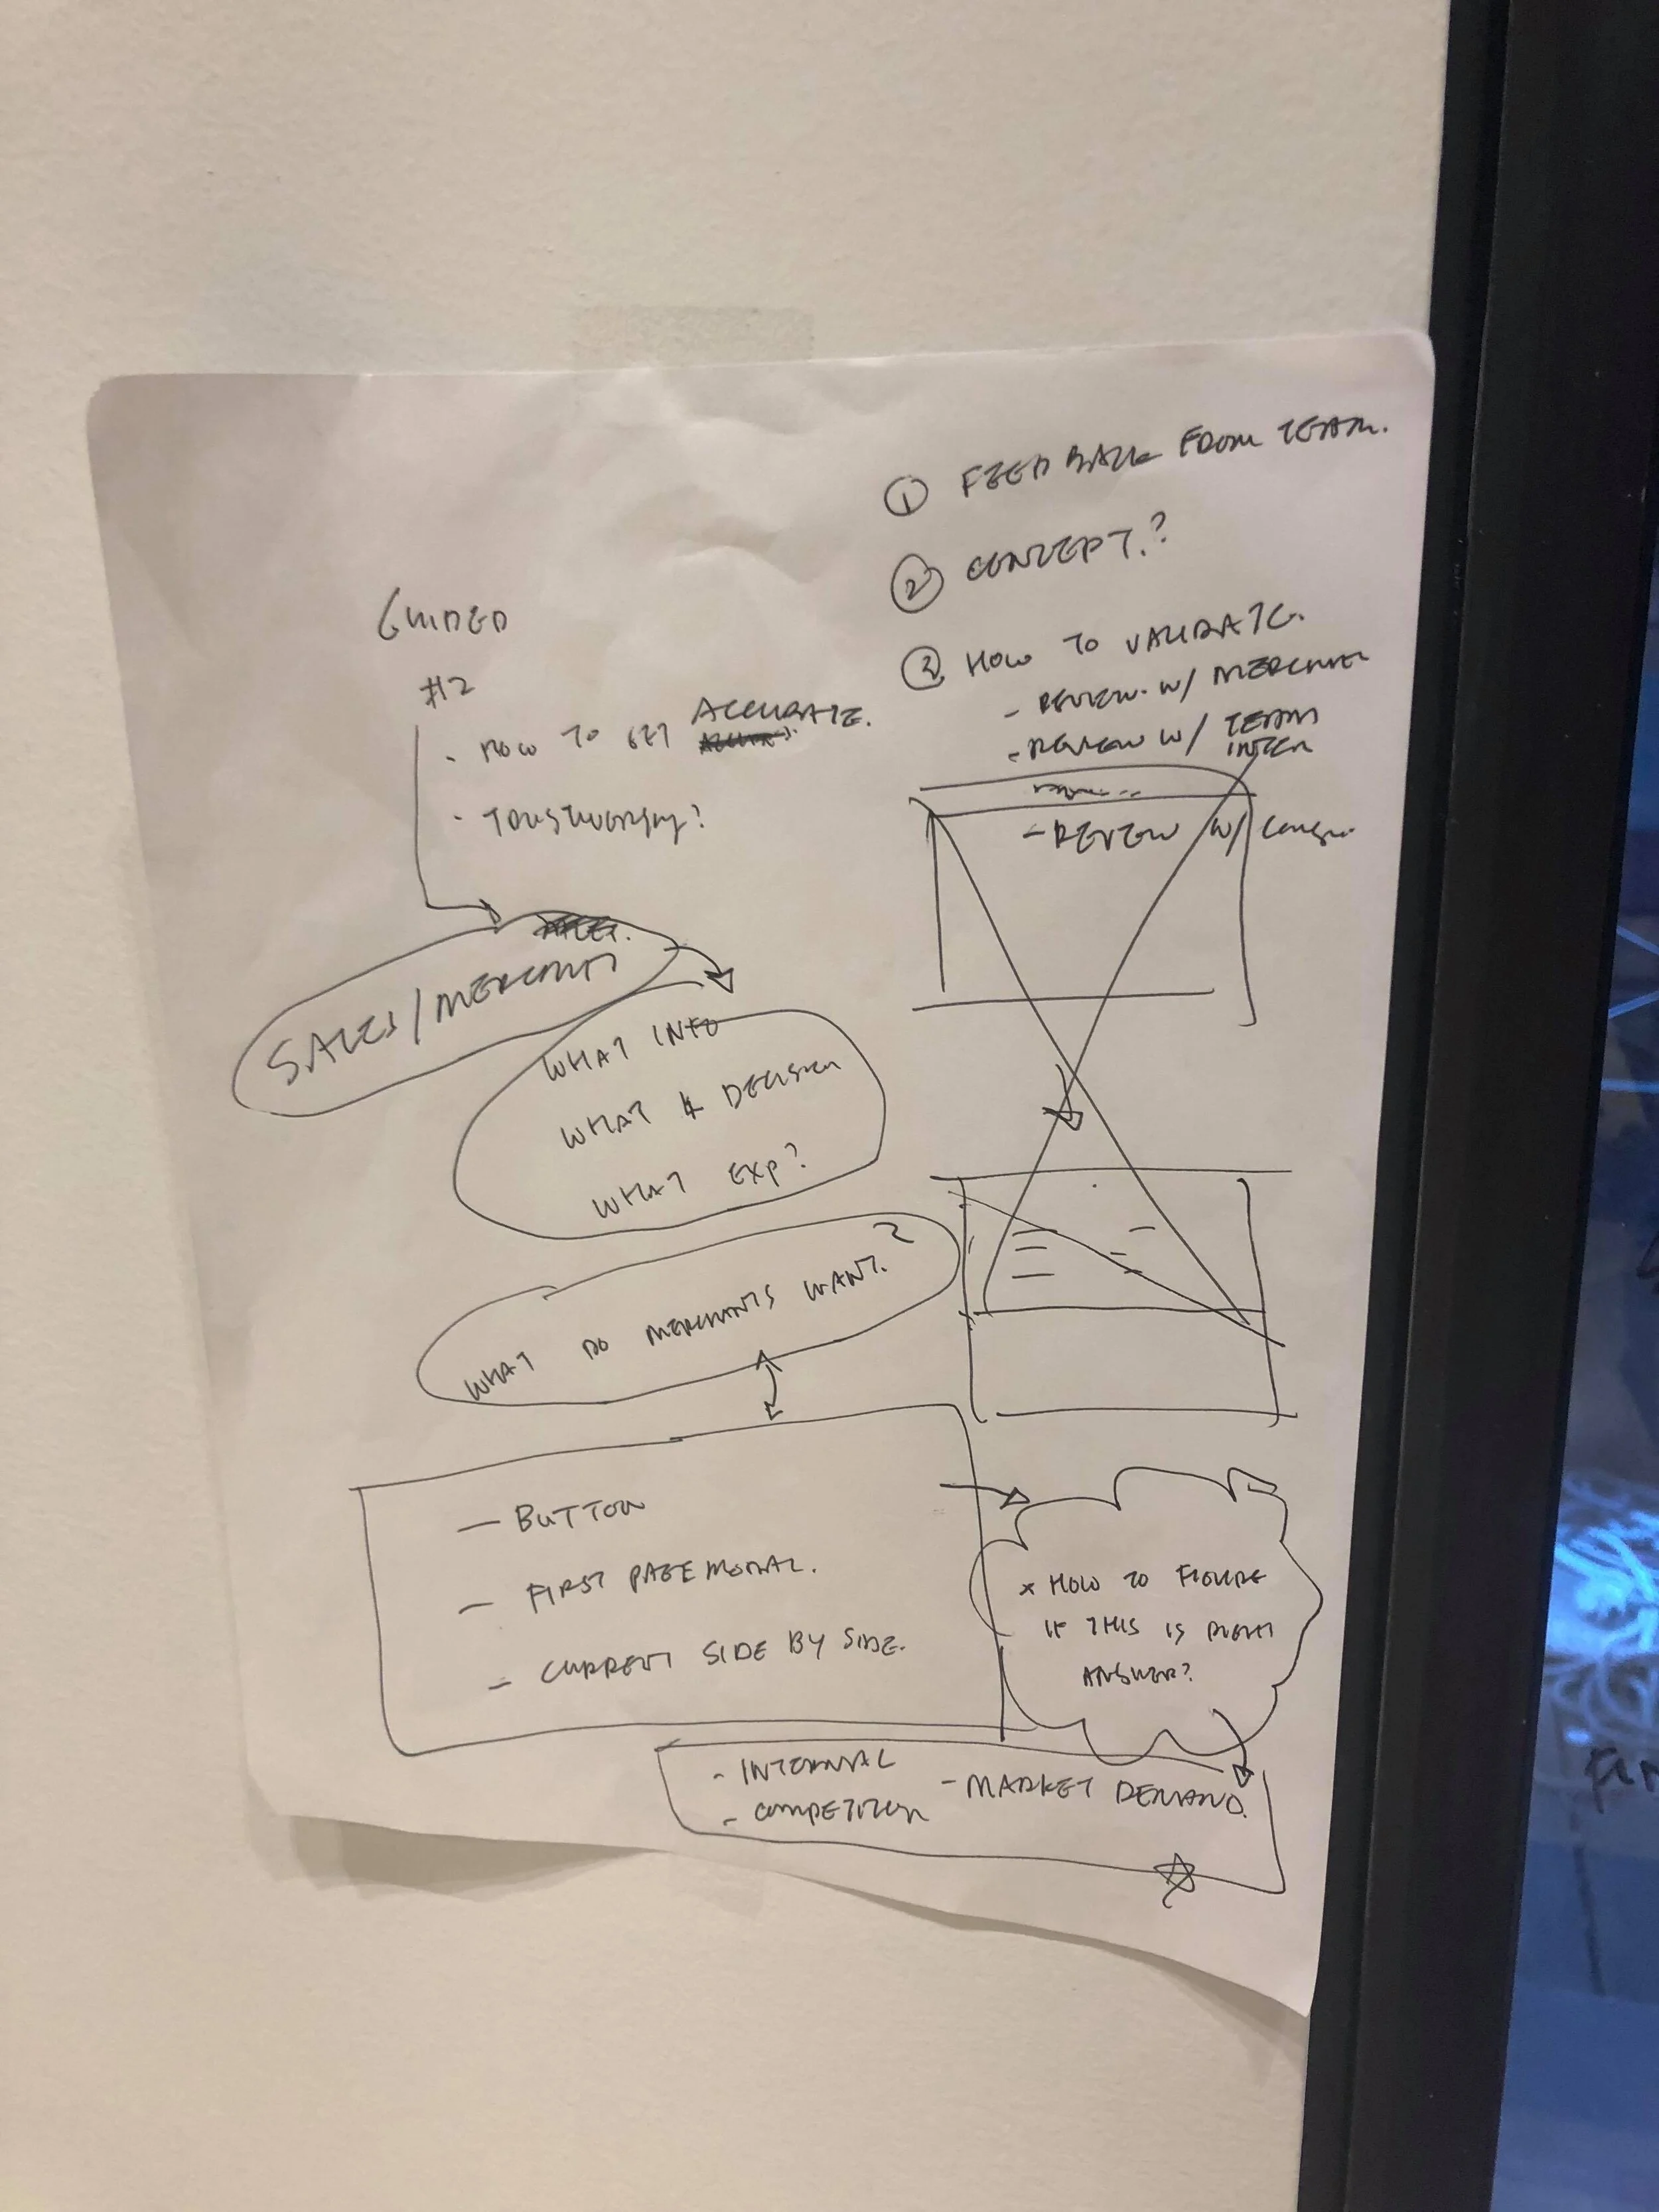 ① FEED BACK FROM TEAM.
② CONCEPT.?
③ HOW TO VALIDATE.
- REVIEW W/ MERCHANT
- REVIEW W/ TEAM
INTER
- REVIEW W/
GUIDED
#2
· HOW TO GET ACCURATE.
· TRUSTWORTHY?
SALES/MERCHANT
WHAT INFO
WHAT DECISION
WHAT EXP?
WHAT DO MERCHANTS WANT.?
— BUTTON
— FIRST PAGE MODAL.
- CURRENT SIDE BY SIDE.
x HOW TO FIGURE
IF THIS IS RIGHT
ANSWER?
- INTERNAL
- COMPETITION
- MARKET DEMAND.